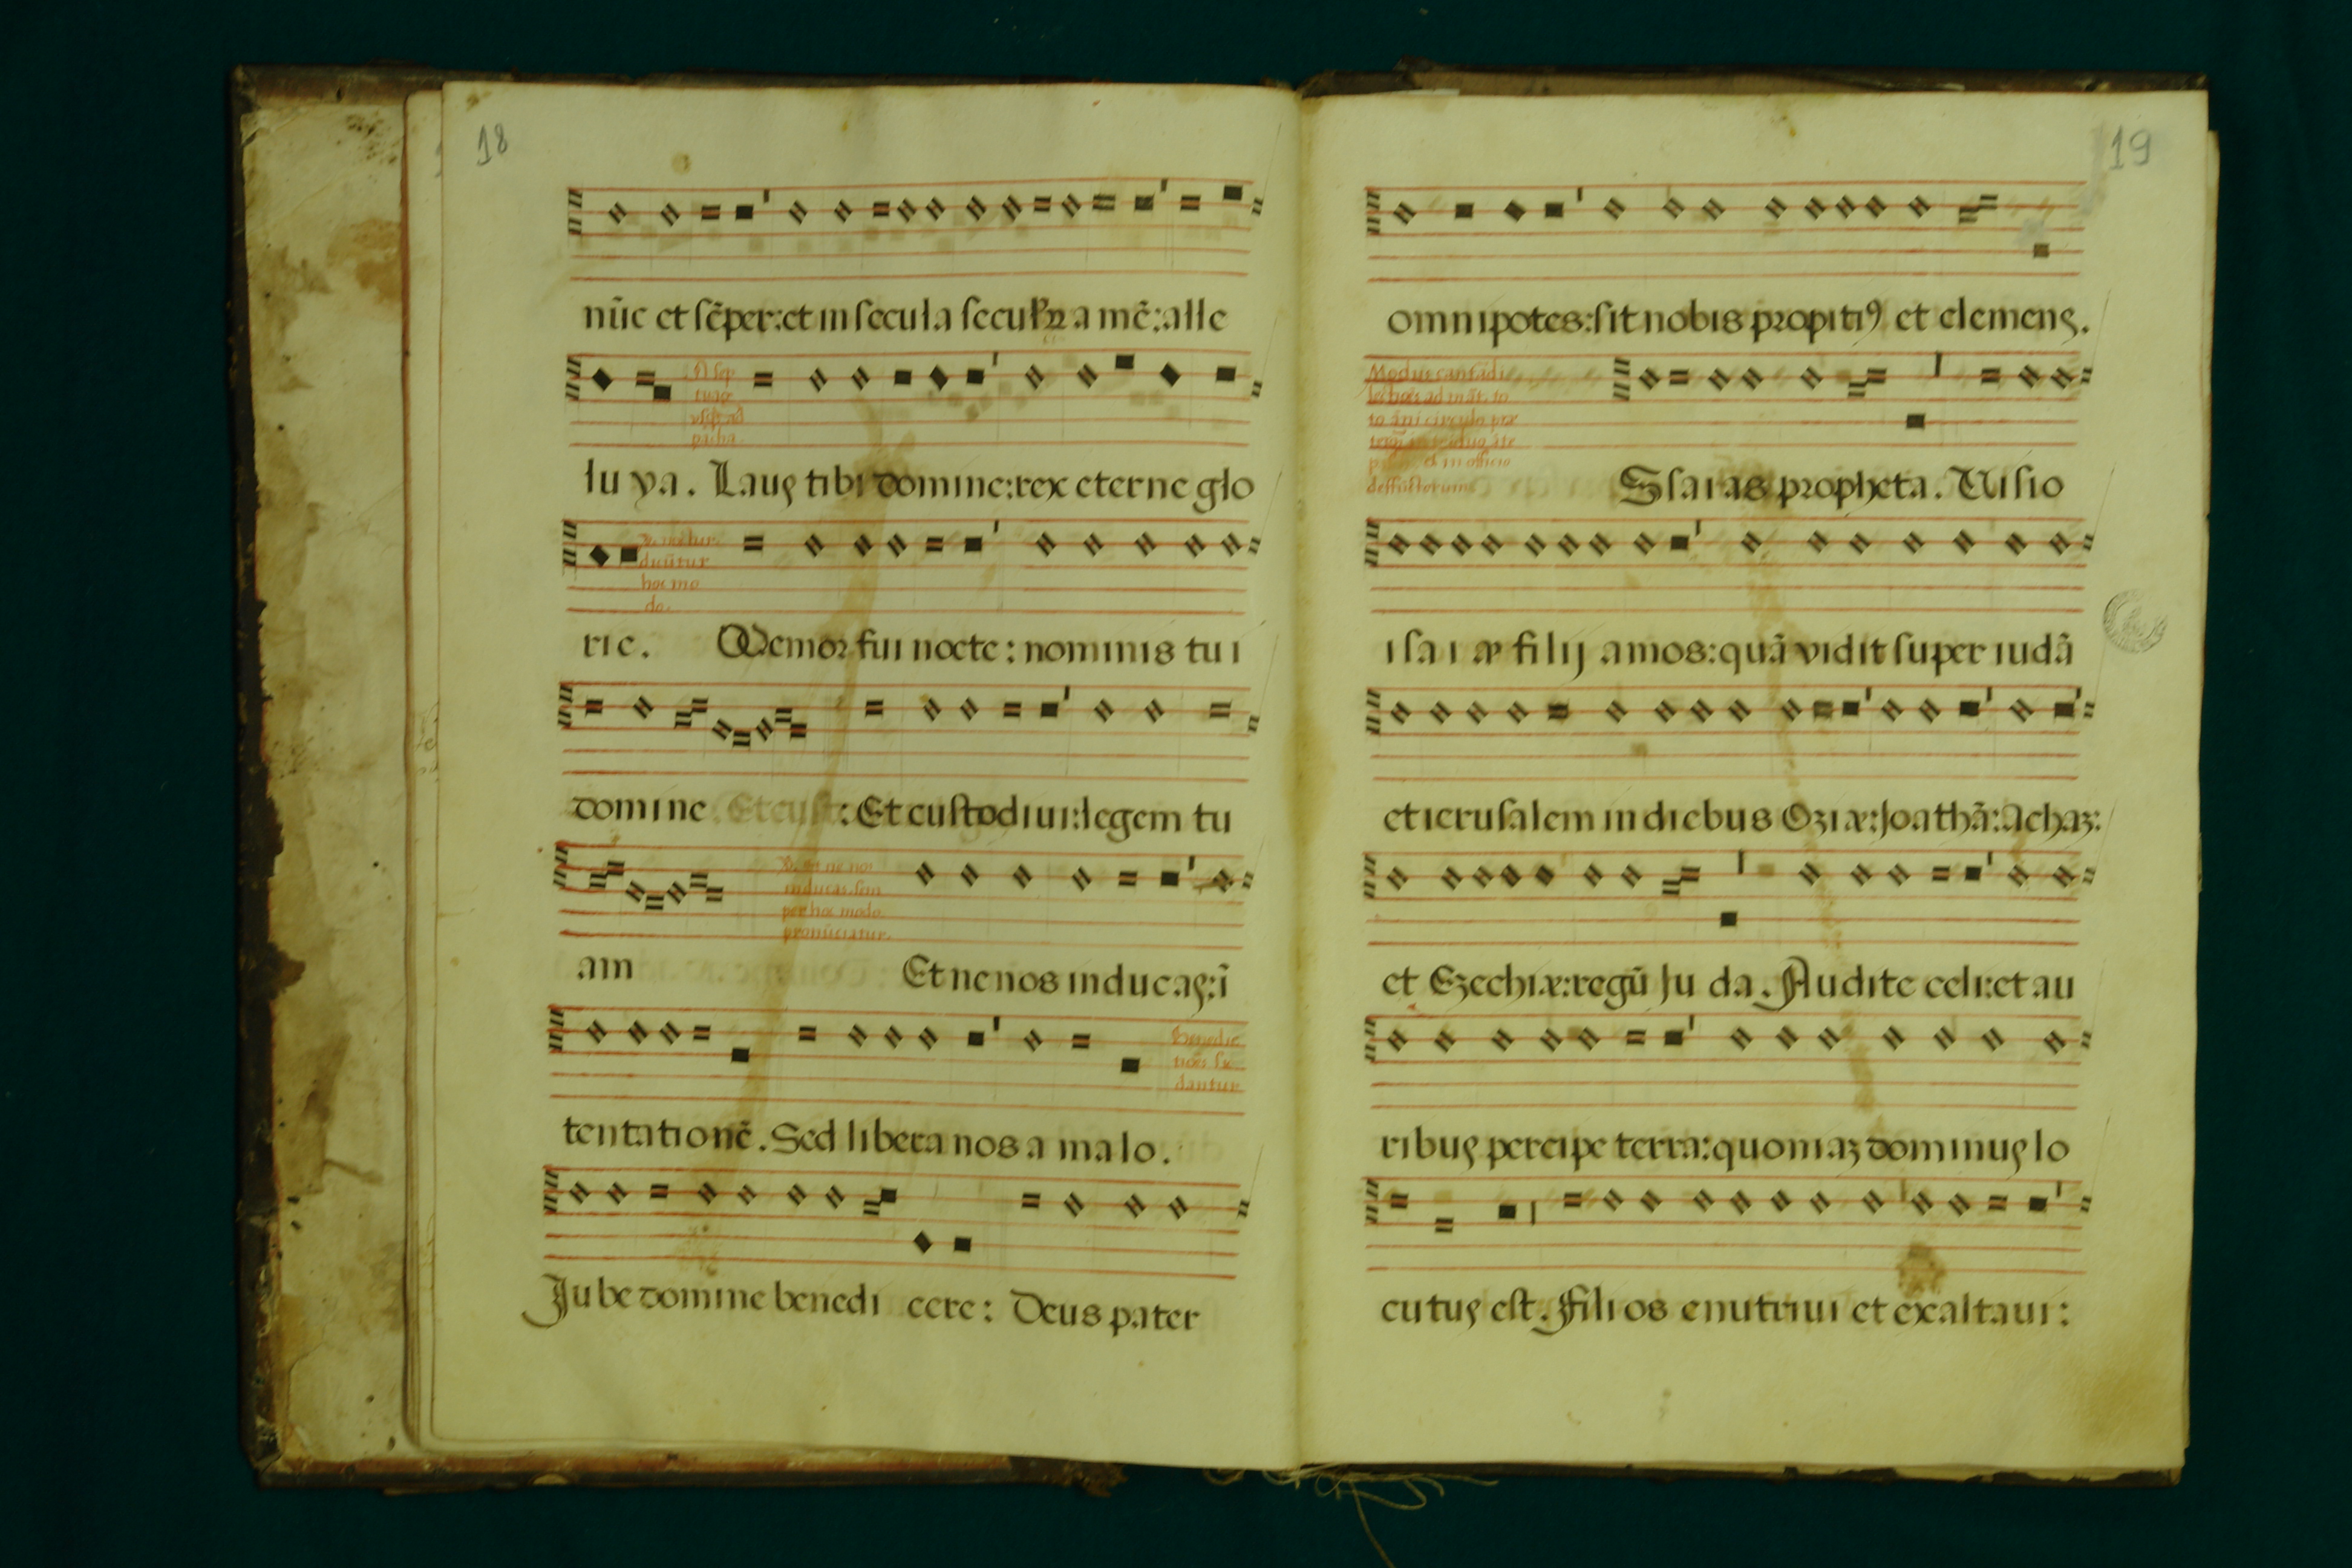 18
nūc et sēper: et in secula seculꝝ a mē: alle
A sep
tuage
usqȝ ad
pascha
lu ya. Laus tibi domine: rex eterne glo
duūtur
hoc mo
do.
rie. Memor fui nocte: nominis tui
domine : Et custodiui: legem tu
℣. Et ne nos
inducas. sem
per hoc modo
pronūciatur.
am Et ne nos inducas: ī
Benedic
dantur
tentationē. Sed libera nos a malo.
Jube domine benedi cere: Deus pater
19
omnipotēs: sit nobis propitiꝰ et clemens.
Modus cantādi
lectiones ad māt. to
to āni circulo præ
deffūctorum
Isaias propheta. Uisio
isaiæ filij amos: quā vidit super iudā
et ierusalem in diebus Oziæ: Joathā: Achaz:
et Ezechiæ: regū Ju da. Audite celi: et au
ribus percipe terra: quoniaꝫ dominus lo
cutus est. Filios enutriui et exaltaui: